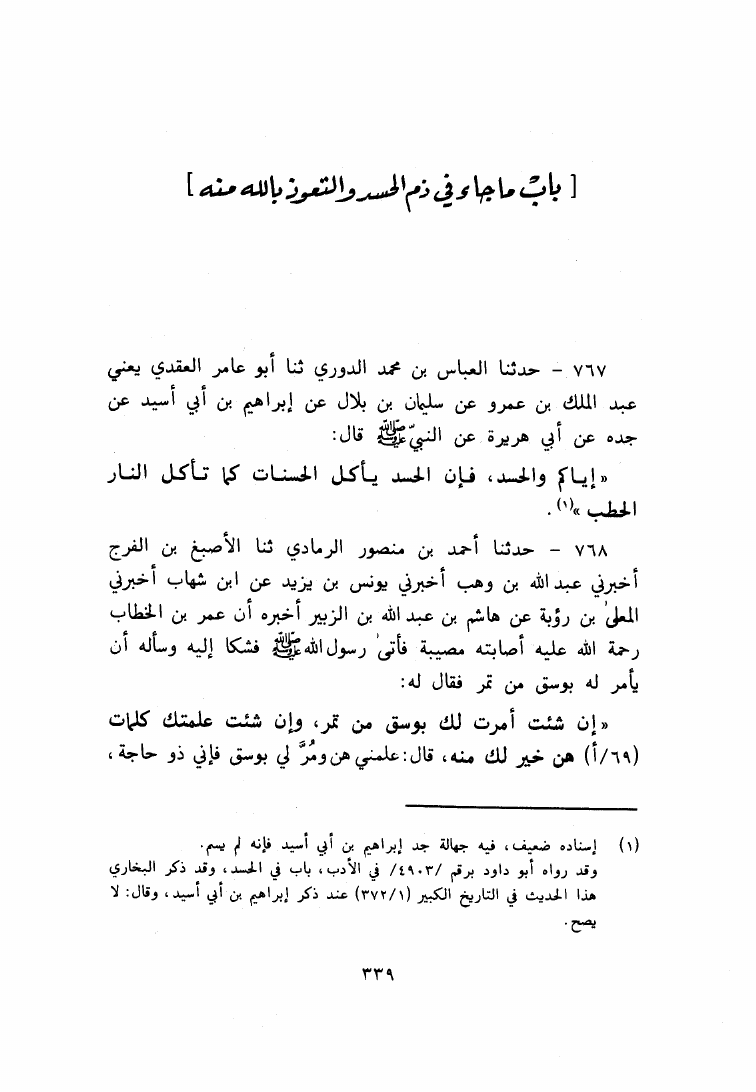 [ باب ما جاء في ذم الحسد والتعوذ بالله منه ]
٧٦٧ - حدثنا العباس بن محمد الدوري ثنا أبو عامر العقدي يعني
عبد الملك بن عمرو عن سليمان بن بلال عن إبراهيم بن أبي أسيد عن
جده عن أبي هريرة عن النبيّ ﷺ قال:
«إياكم والحسد، فإن الحسد يأكل الحسنات كما تأكل النار
الحطب»(١).
٧٦٨ - حدثنا أحمد بن منصور الرمادي ثنا الأصبغ بن الفرج
أخبرني عبد الله بن وهب أخبرني يونس بن يزيد عن ابن شهاب أخبرني
المعلىٰ بن رؤبة عن هاشم بن عبد الله بن الزبير أخبره أن عمر بن الخطاب
رحمة الله عليه أصابته مصيبة فأتىٰ رسول الله ﷺ فشكا إليه وسأله أن
يأمر له بوسق من تمر فقال له:
«إن شئت أمرت لك بوسق من تمر، وإن شئت علمتك كلمات
(٦٩/أ) هن خير لك منه، قال: علمني هن ومُرَّ لي بوسق فإني ذو حاجة،
(١) إسناده ضعيف، فيه جهالة جد إبراهيم بن أبي أسيد فإنه لم يسم.
وقد رواه أبو داود برقم /٤٩٠٣/ في الأدب، باب في الحسد، وقد ذكر البخاري
هذا الحديث في التاريخ الكبير (٣٧٢/١) عند ذكر إبراهيم بن أبي أسيد، وقال: لا
يصح.
٣٣٩